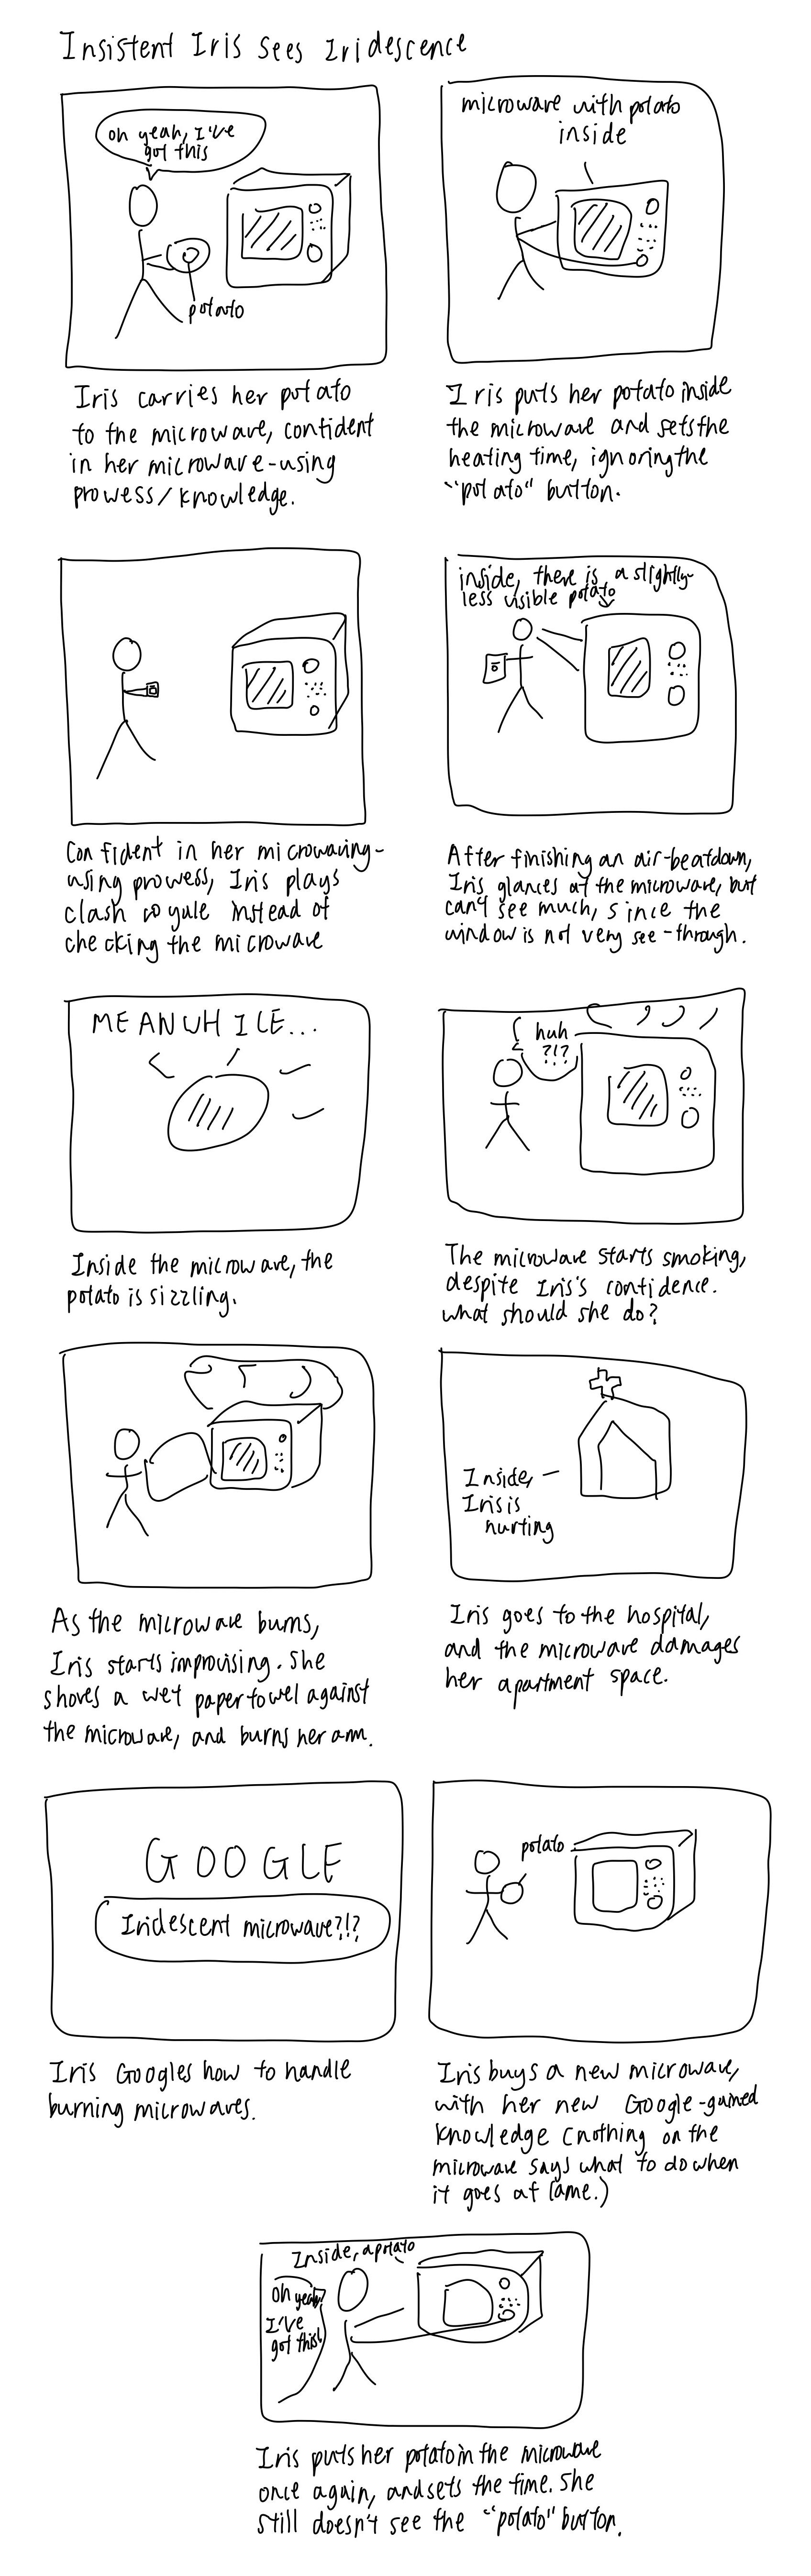 Insistent Iris Sees Iridescence
oh yeah, I've
got this
potato
Iris carries her potato
to the microwave, confident
in her microwave-using
prowess/knowledge.
microwave with potato
inside
Iris puts her potato inside
the microwave and sets the
heating time, ignoring the
"potato" button.
Confident in her microwaving-
using prowess, Iris plays
clash royale instead of
checking the microwave
inside, there is a slightly-
less visible potato
After finishing an air-beatdown,
Iris glances at the microwave, but
can't see much, since the
window is not very see-through.
MEANWHILE...
Inside the microwave, the
potato is sizzling.
huh
?!?
The microwave starts smoking,
despite Iris's confidence.
what should she do?
As the microwave burns,
Iris starts improvising. She
shoves a wet paper towel against
the microwave, and burns her arm.
Inside,
Iris is
hurting
Iris goes to the hospital,
and the microwave damages
her apartment space.
GOOGLE
Iridescent microwave?!?
Iris Googles how to handle
burning microwaves.
potato
Iris buys a new microwave,
with her new Google-gained
knowledge (nothing on the
microwave says what to do when
it goes aflame.)
Inside, a potato
oh yeah?
I've
got this!
Iris puts her potato in the microwave
once again, and sets the time. She
still doesn't see the "potato" button.